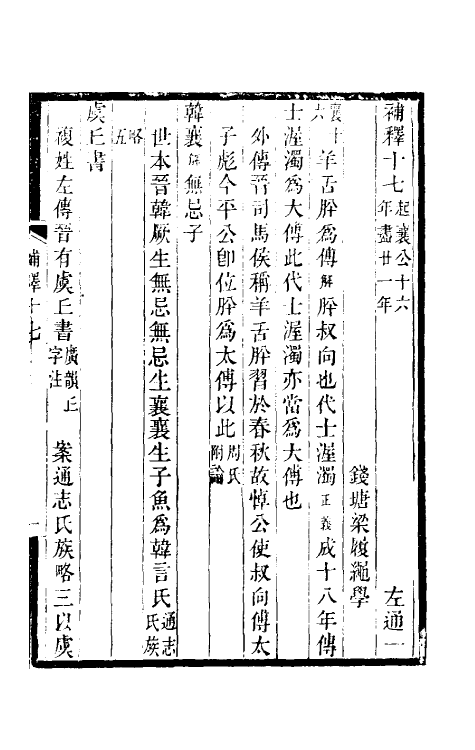 補釋十七起襄公十六年盡廿一年 左通一
錢塘梁履繩學
襄十六 羊舌肸為傅解肸叔向也代士渥濁正義成十八年傳
士渥濁為大傅此代士渥濁亦當為大傅也
外傳晉司馬侯稱羊舌肸習於春秋故悼公使叔向傅太
子彪今平公卽位肸為太傅以此周氏附論
韓襄解無忌子
世本晉韓厥生無忌無忌生襄襄生子魚為韓言氏通志氏族
略五
虞丘書
複姓左傳晉有虞丘書廣韻丘字注 案通志氏族略三以虞
補釋十七 一